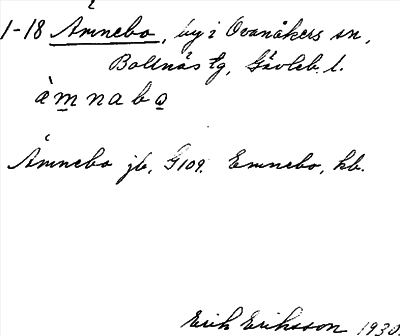 1-18 Ämnebo, by i Ovanåkers sn,
Bollnäs tg, Gävleb. l.
ä̀m̲nabo̲
Ämnebo jb, G109. Emnebo, kb.
Erik Eriksson 1930.